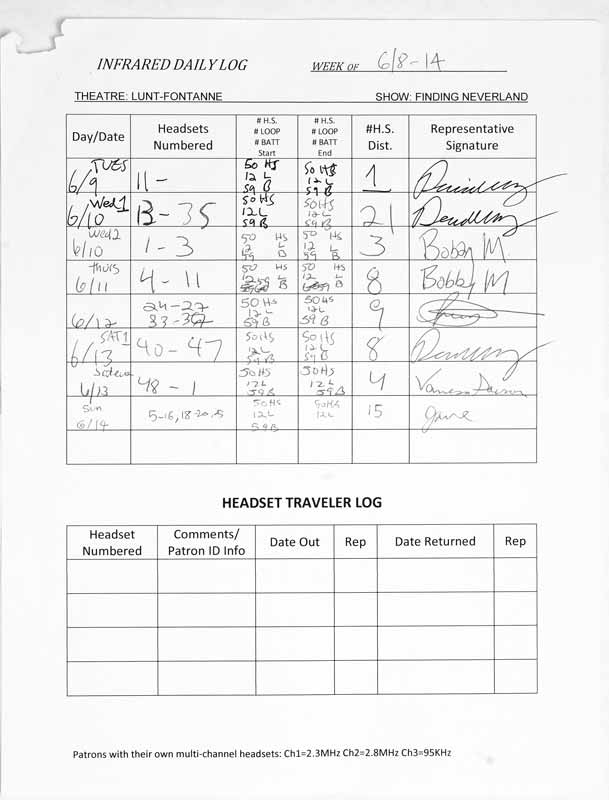 INFRARED DAILY LOG WEEK OF 6/8-14
THEATRE: LUNT-FONTANNE SHOW: FINDING NEVERLAND
Day/Date Headsets Numbered # H.S. # LOOP # BATT Start # H.S. # LOOP # BATT End #H.S. Dist. Representative Signature
TUES 6/9 11- 50 HS 12 L 59 B 50 HS 12 L 59 B 1
Wed1 6/10 13-35 50 HS 12 L 59 B 50 HS 12 L 59 B 21
Wed2 6/10 1-3 50 HS 12 L 59 B 50 HS 12 L 59 B 3 Bobby M.
Thurs 6/11 4-11 50 HS 12 L B 50 HS 12 L B 8 Bobby M
6/12 24-27 33-36 50 HS 12 L 59 B 50 HS 12 L 59 B 9
SAT1 6/13 40-47 50 HS 12 L 59 B 50 HS 12 L 59 B 8
6/13 48-1 50 HS 12 L 59 B 50 HS 12 L 59 B 4 Vanessa
Sun 6/14 5-16, 18-20, 50 HS 12 L 59 B 50 HS 12 L 15
HEADSET TRAVELER LOG
Headset Numbered Comments/ Patron ID Info Date Out Rep Date Returned Rep
Patrons with their own multi-channel headsets: Ch1=2.3MHz Ch2=2.8MHz Ch3=95KHz